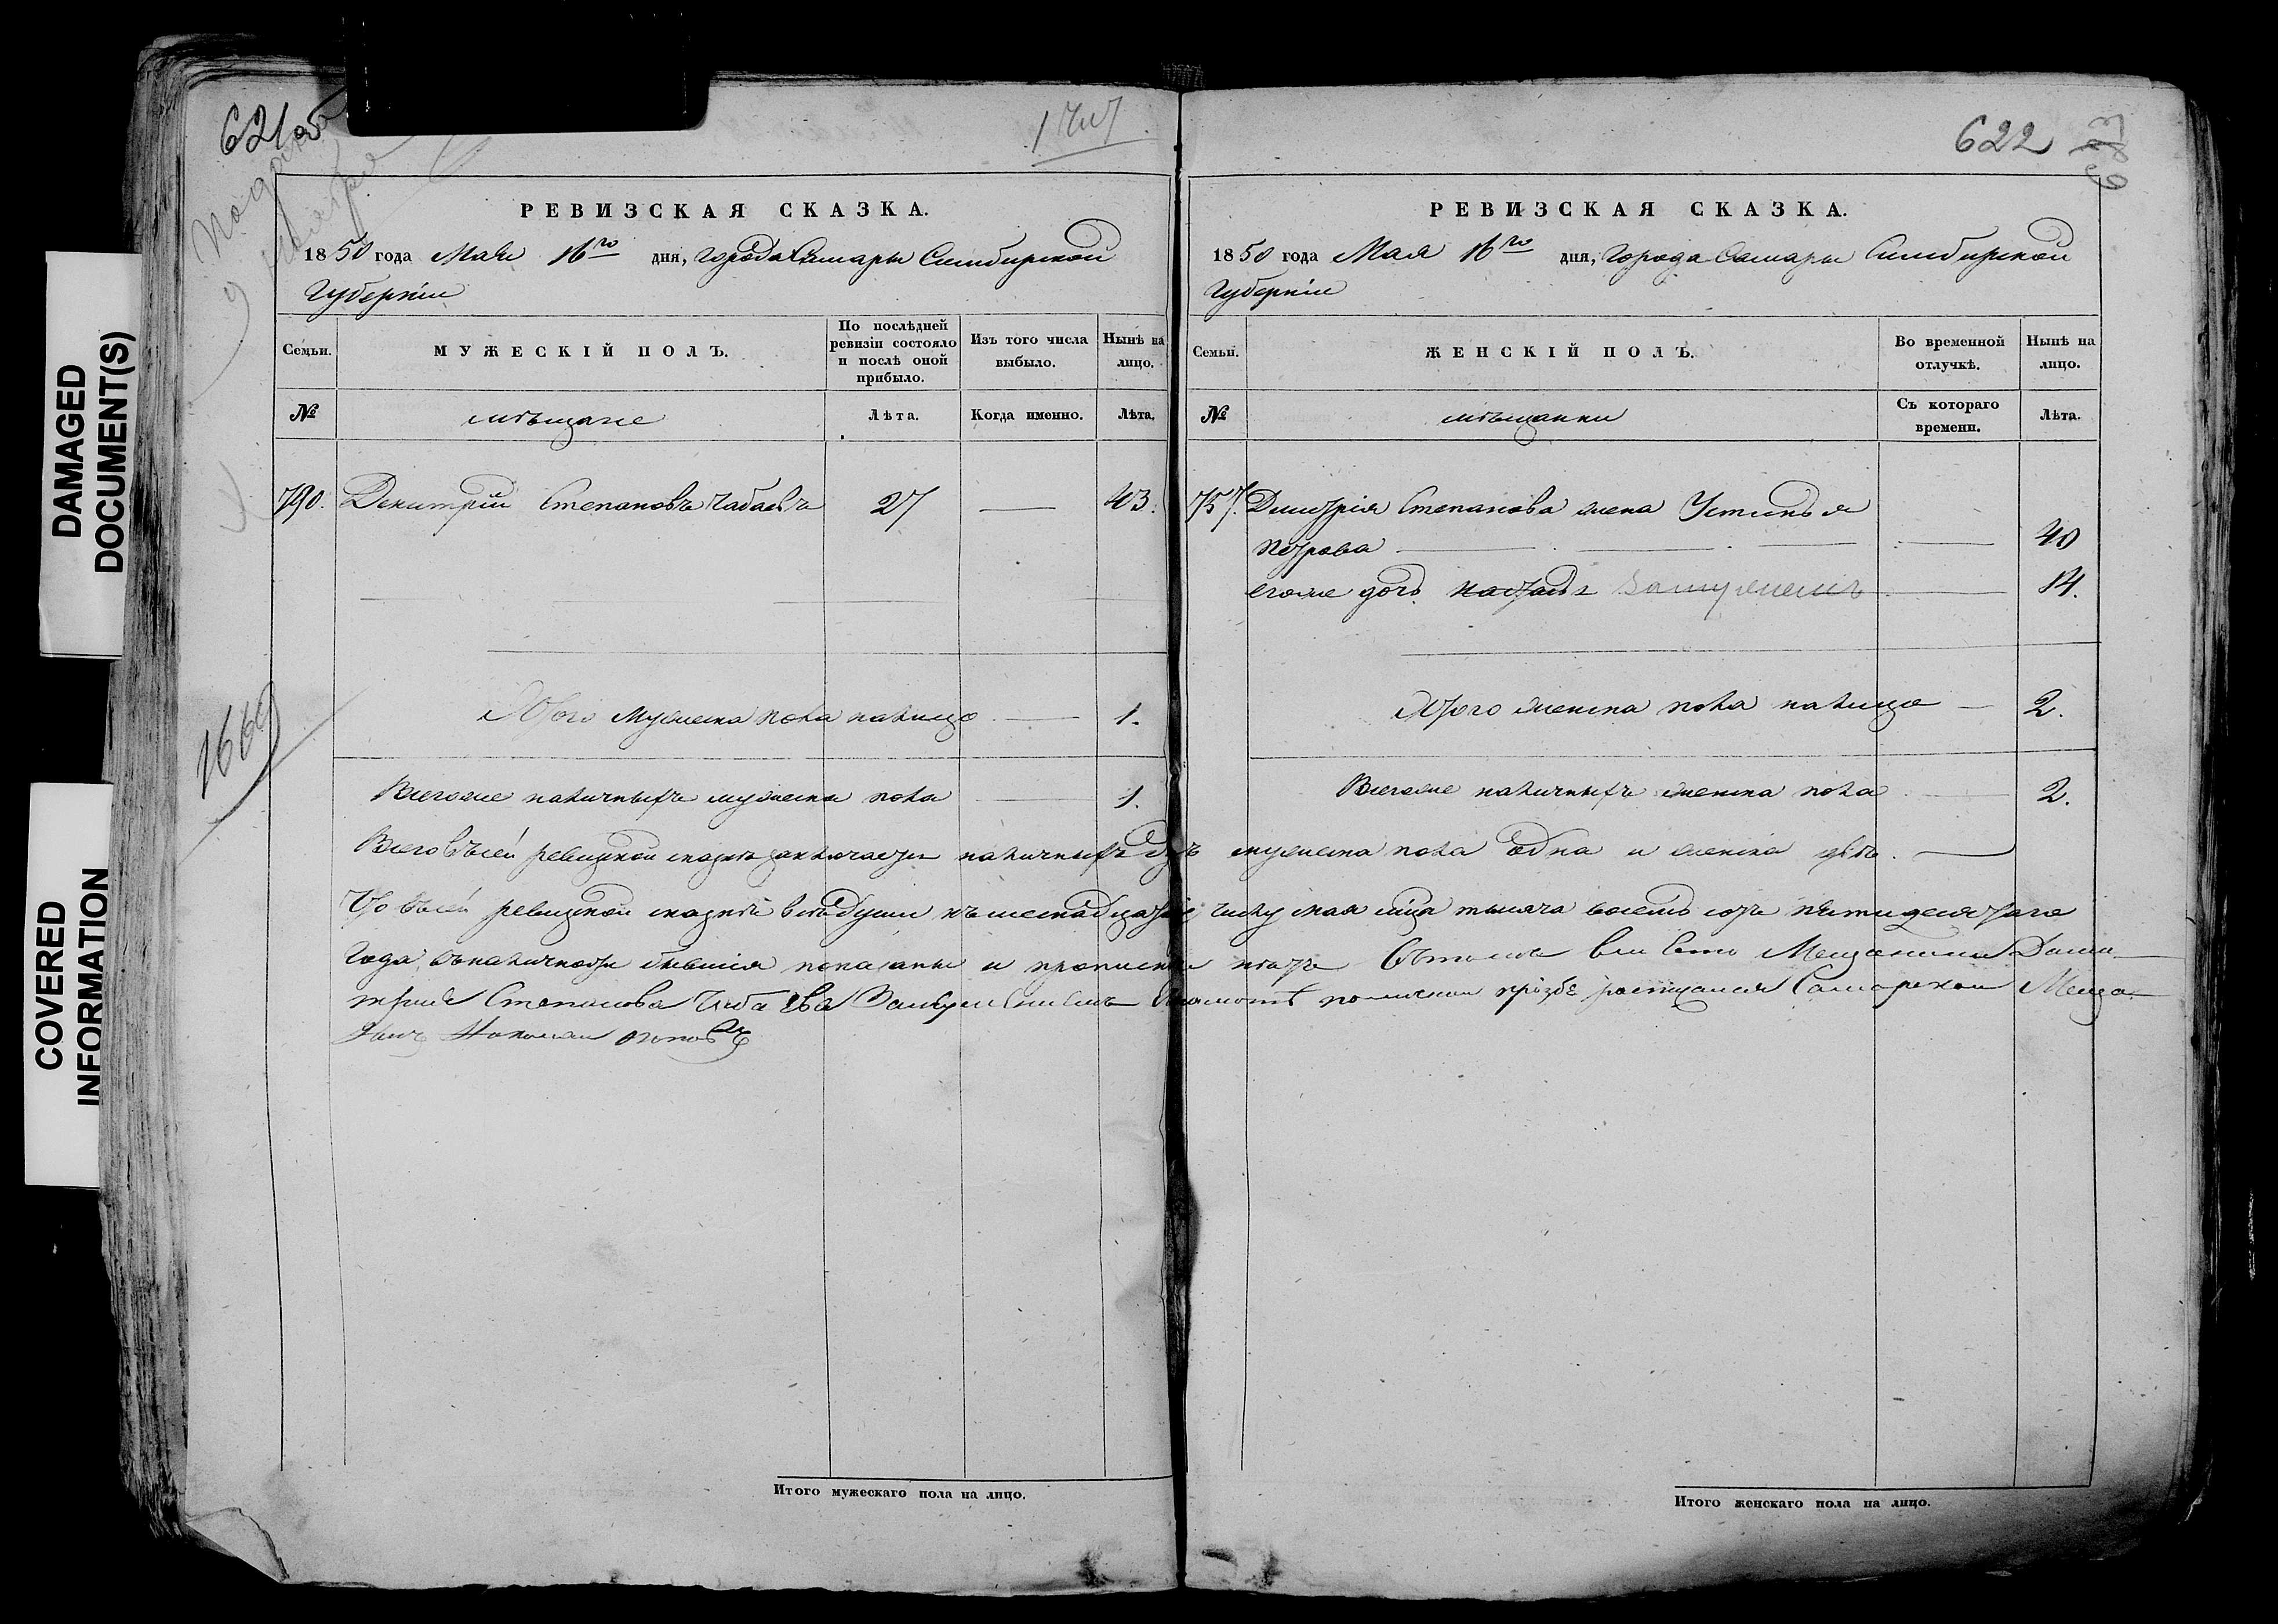 DAMAGED
DOCUMENT(S)
COVERED
INFORMATION
621 об
1669
РЕВИЗСКАЯ СКАЗКА.
1850 года Мая 16го дня, города Самары Симбирской
Губерніи
Семьи.
МУЖЕСКІЙ ПОЛЪ.
По послѣдней ревизіи состояло и послѣ оной прибыло.
Изъ того числа выбыло.
Нынѣ на лицо.
№
мѣщане
Лѣта.
Когда именно.
Лѣта.
790. Дмитрій Степановъ Чабаевъ 27 — 43.
Итого мужеска пола налицо — 1.
Всегоже наличныхъ мужеска пола — 1.
622
РЕВИЗСКАЯ СКАЗКА.
1850 года Мая 16го дня, города Самары Симбирской
Губерніи
Семьи.
ЖЕНСКІЙ ПОЛЪ.
Во временной отлучкѣ.
Нынѣ на лицо.
№
мѣщанки
Съ котораго времени.
Лѣта.
757. Дмитрія Степанова жена Устинья
Петрова — 40
егоже дочь Наталья замужемъ — 14.
Итого женска пола налицо — 2.
Всегоже наличныхъ женска пола — 2.
Всего въсей ревизской сказкѣ заключается наличныхъ душъ мужеска пола одна и женска двѣ. —
Что въсей ревизской сказкѣ всѣ души къ шеснадцатому числу мая мца тысяча восемь сотъ пятидесятаго
года въналичности бывшія показаны и прописныхъ нѣтъ Вътомъ вместо Мещанина Дми-
трия Степанова Чабаева Занеумениемъ Грамотѣ поличной прозбе росписался Самарской Меща-
нинъ Николай Поповъ
Итого мужескаго пола на лицо.
Итого женскаго пола на лицо.